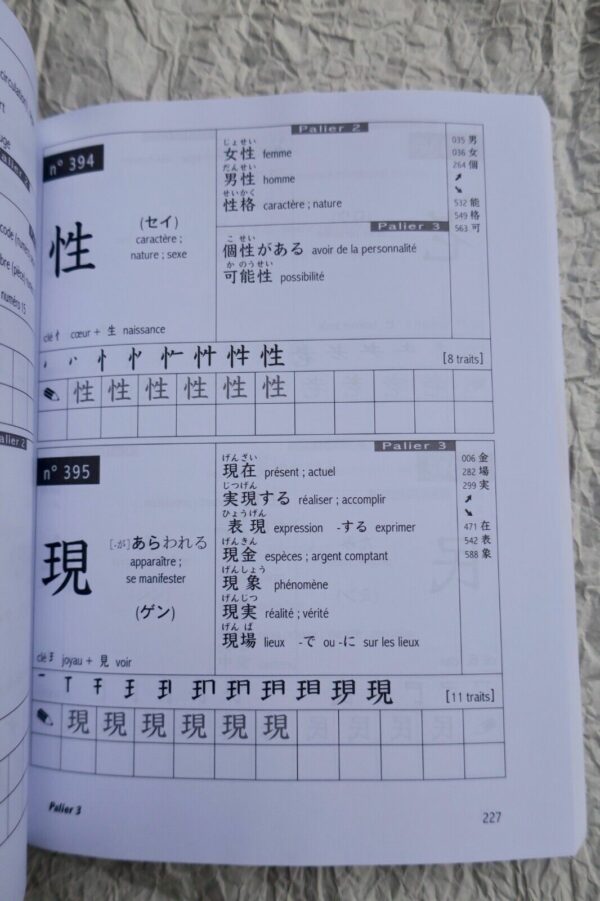 circulation
Palier 2
n° 394
性
(セイ)
caractère ;
nature ; sexe
clé 忄 cœur + 生 naissance
じょせい
女性 femme
だんせい
男性 homme
せいかく
性格 caractère ; nature
Palier 3
こ せい
個性がある avoir de la personnalité
か のうせい
可能性 possibilité
035 男
036 女
264 個
➚
➘
532 能
549 格
563 可
性
[8 traits]
性 性 性 性 性 性
n° 395
現
[-が] あらわれる
apparaître ;
se manifester
(ゲン)
clé 王 joyau + 見 voir
Palier 3
げんざい
現在 présent ; actuel
じつげん
実現する réaliser ; accomplir
ひょうげん
表現 expression -する exprimer
げんきん
現金 espèces ; argent comptant
げんしょう
現象 phénomène
げんじつ
現実 réalité ; vérité
げん ば
現場 lieux -で ou -に sur les lieux
006 金
282 場
299 実
➚
➘
471 在
542 表
588 象
現
[11 traits]
現 現 現 現 現 現
Palier 3
227